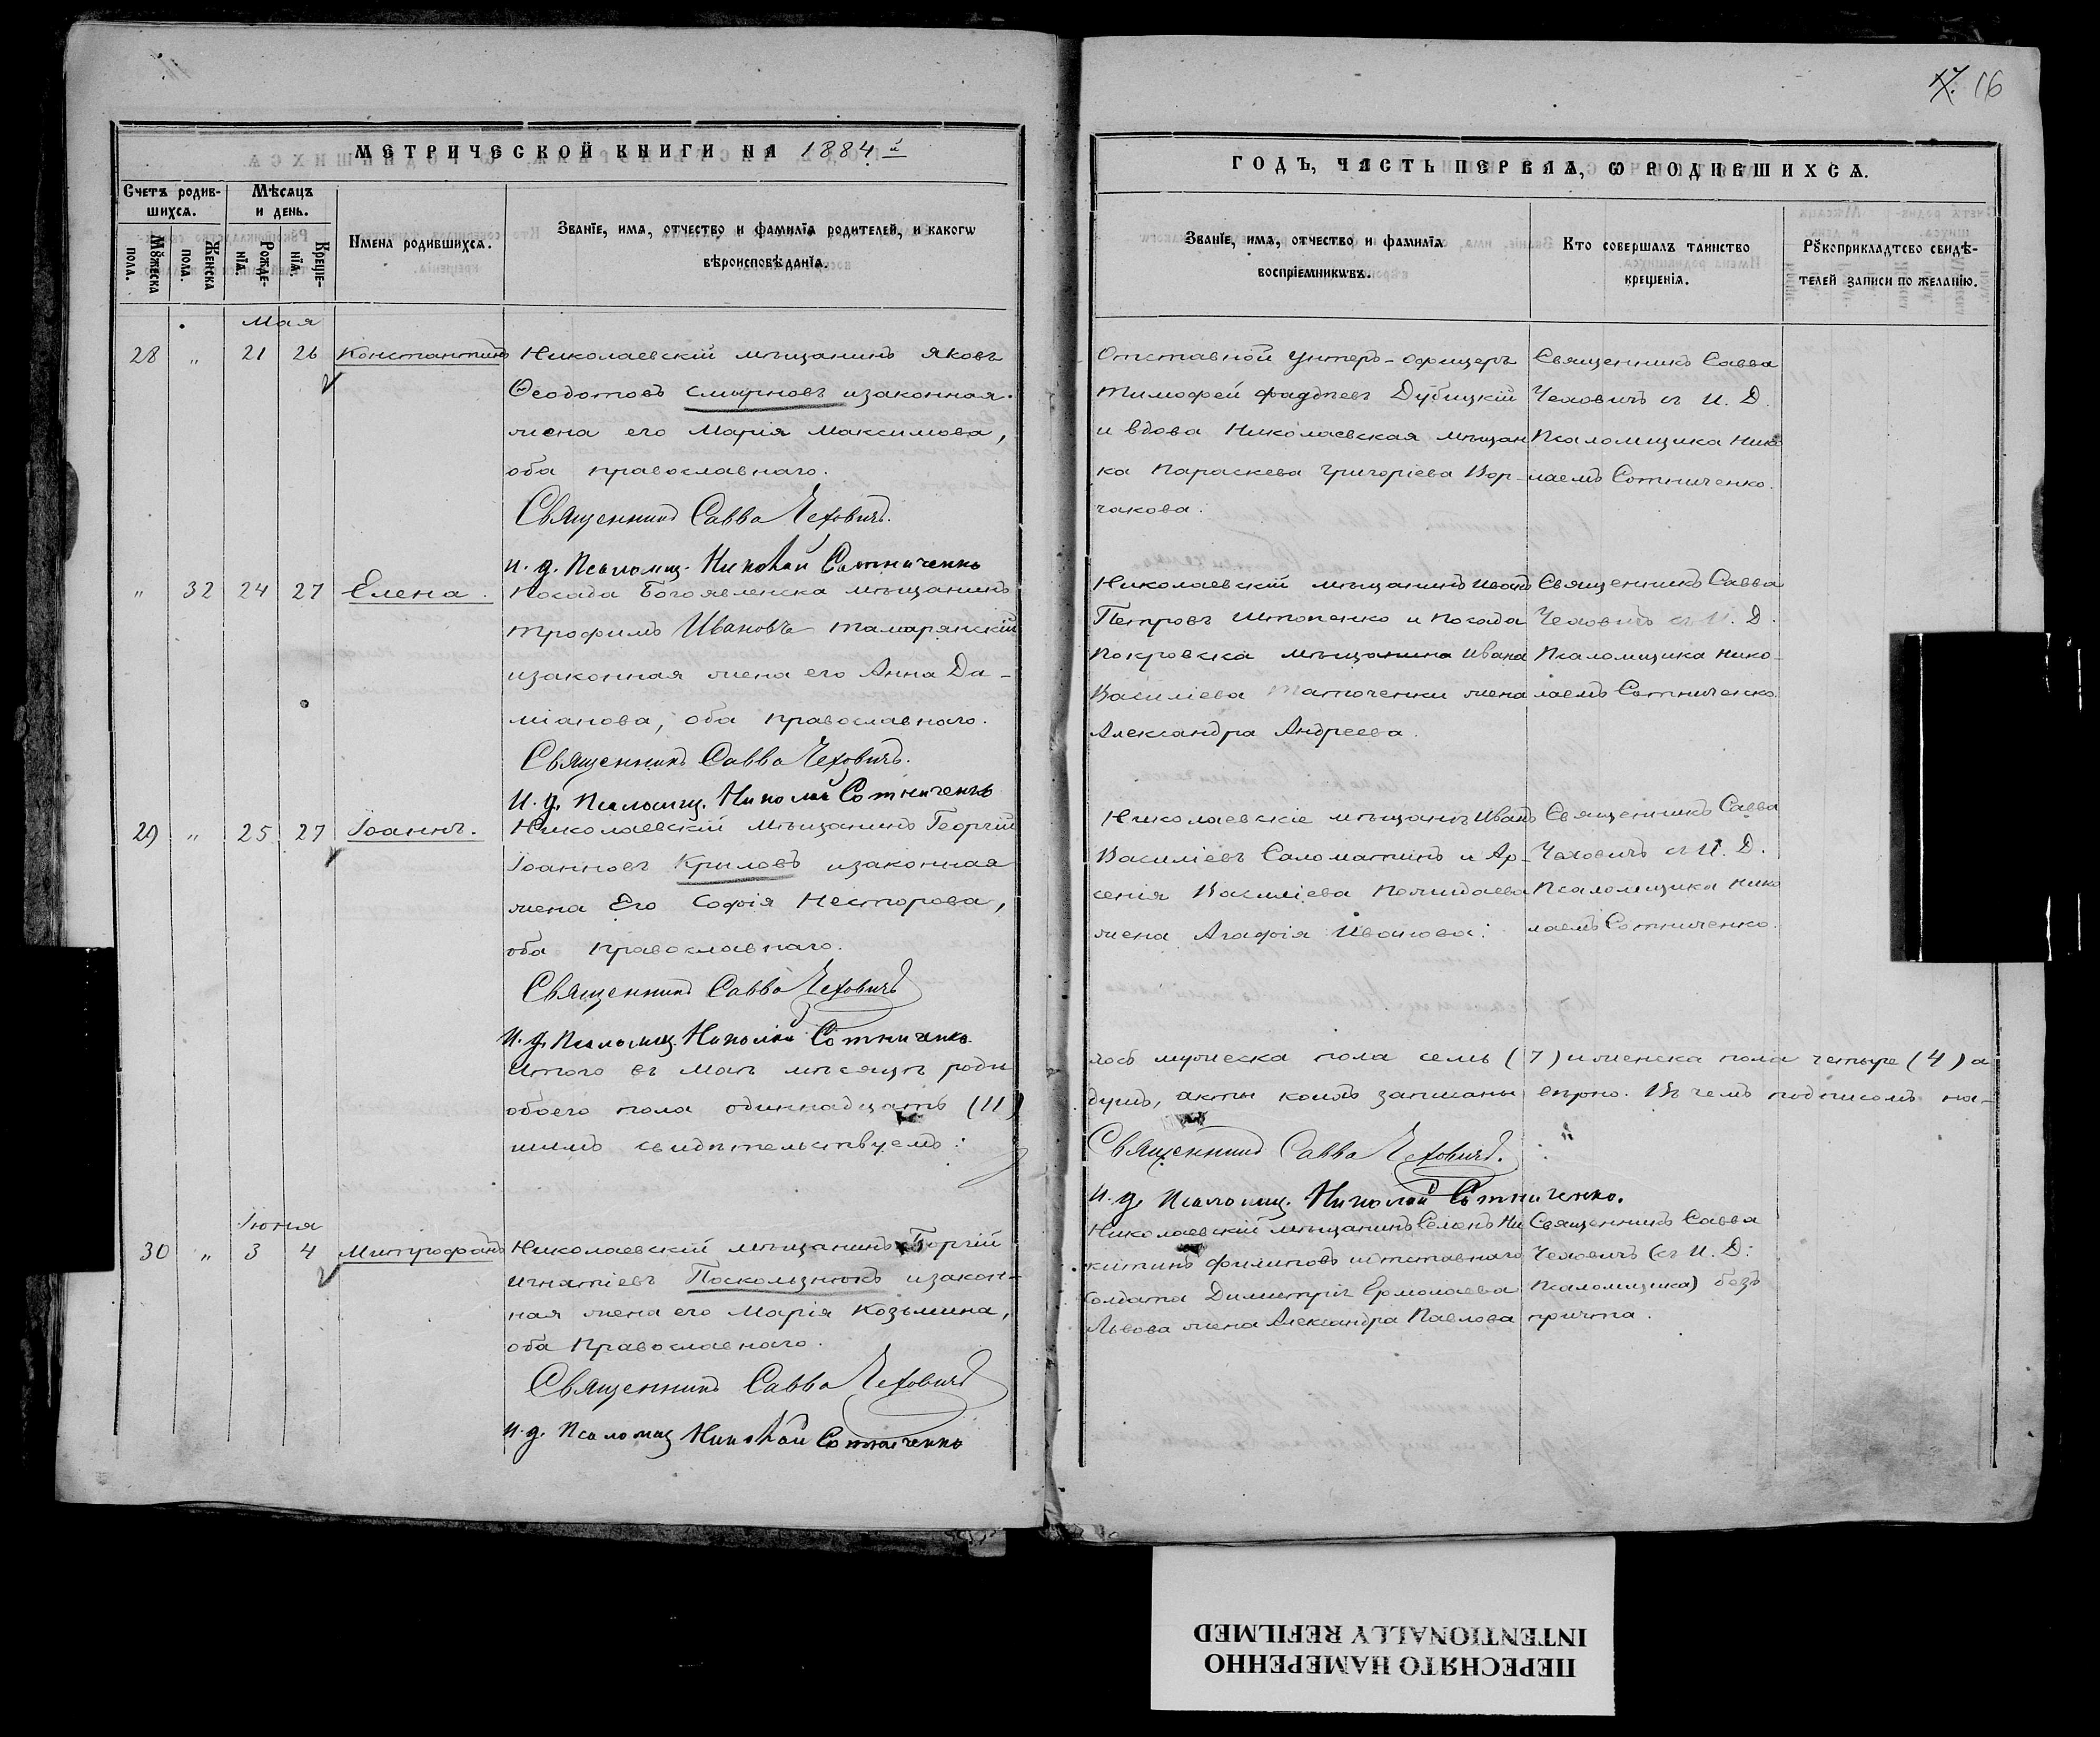 17. 16
МЕТРИЧЕСКОЙ КНИГИ НА 1884 й
ГОДЪ, ЧАСТЬ ПЕРВАЯ, Ѡ РОДИВШИХСѦ.
Счетъ родив-
шихсѧ.
Мѣсѧцъ
и день.
Мꙋжеска
пола.
Женска
пола.
Рожде-
нїѧ.
Креще-
нїѧ.
Имена родившихсѧ.
Званїе, имѧ, отчество и фамилїѧ родителей, и какогѡ
вѣроисповѣданїѧ.
Званїе, имѧ, отчество и фамилїѧ
воспрїемникѡвъ.
Кто совершалъ таинство
крещенїѧ.
Рꙋкоприкладтсво свидѣ-
телей записи по желанїю.
Мая
28 " 21 26 Константинъ
Николаевскій мѣщанинъ Яковъ
Ѳеодотовъ Смирновъ изаконная
жена его Марія Максимова,
оба православнаго.
Священникъ Савва Чеховичъ.
И. д. Псаломщ. Николай Сотниченко
Отставной унтеръ-офицеръ
Тимофей Фадѣевъ Дубицкій
и вдова Николаевская мѣщан
ка Параскева Григоріева Вор-
чакова.
Священникъ Савва
Чеховичъ съ И. Д.
Псаломщика Нико
лаемъ Сотниченко.
" 32 24 27 Елена.
Посада Богоявленска мѣщанинъ
Трофимъ Ивановъ Тамарянскій
изаконная жена его Анна Да-
міанова, оба православнаго.
Священникъ Савва Чеховичъ.
И. д. Псаломщ. Николай Сотниченко
Николаевскій мѣщанинъ Иванъ
Петровъ Штопенко и Посада
Покровска мѣщанина Ивана
Василіева жена
Александра Андреева.
Священникъ Савва
Чеховичъ съ И. Д.
Псаломщика Нико-
лаемъ Сотниченко.
29 " 25 27 Іоаннъ.
Николаевскій мѣщанинъ Георгій
Іоанновъ Криловъ изаконная
жена Его Софія Несторова,
оба православнаго.
Священникъ Савва Чеховичъ
И. д. Псаломщ. Николай Сотниченко
Николаевскіе мѣщанъ Иванъ
Василіевъ Саломатинъ и Ар-
сенія Василіева
жена Агафія Иванова:
Священникъ Савва
Чеховичъ съ И. Д.
Псаломщика Нико
лаемъ Сотниченко.
Итого въ маѣ мѣсяцѣ роди
лось мужеска пола семь (7) и женска пола четыре (4) а
обоего пола одиннадцать (11)
душъ, акты коихъ записаны вѣрно. Въ чемъ подписомъ на-
шимъ свидѣтельствуемъ:
Священникъ Савва Чеховичъ.
И. д. Псаломщ. Николай Сотниченко.
Іюня
30 " 3 4 Митрофанъ
Николаевскій мѣщанинъ Георгій
Игнатіевъ Поскользнюкъ изакон-
ная жена его Марія Козьмина,
оба Православнаго.
Священникъ Савва Чеховичъ
И. д. Псаломщ Николай Сотниченко
Николаевскій мѣщанинъ Семонъ Ни
китинъ Филиповъ иотставнаго
солдата Димитрія Ермолаева
Львова жена Александра Павлова
Священникъ Савва
Чеховичъ (съ И. Д:
Псаломщика) безъ
причта.
ПЕРЕСНЯТО НАМЕРЕННО
INTENTIONALLY REFILMED